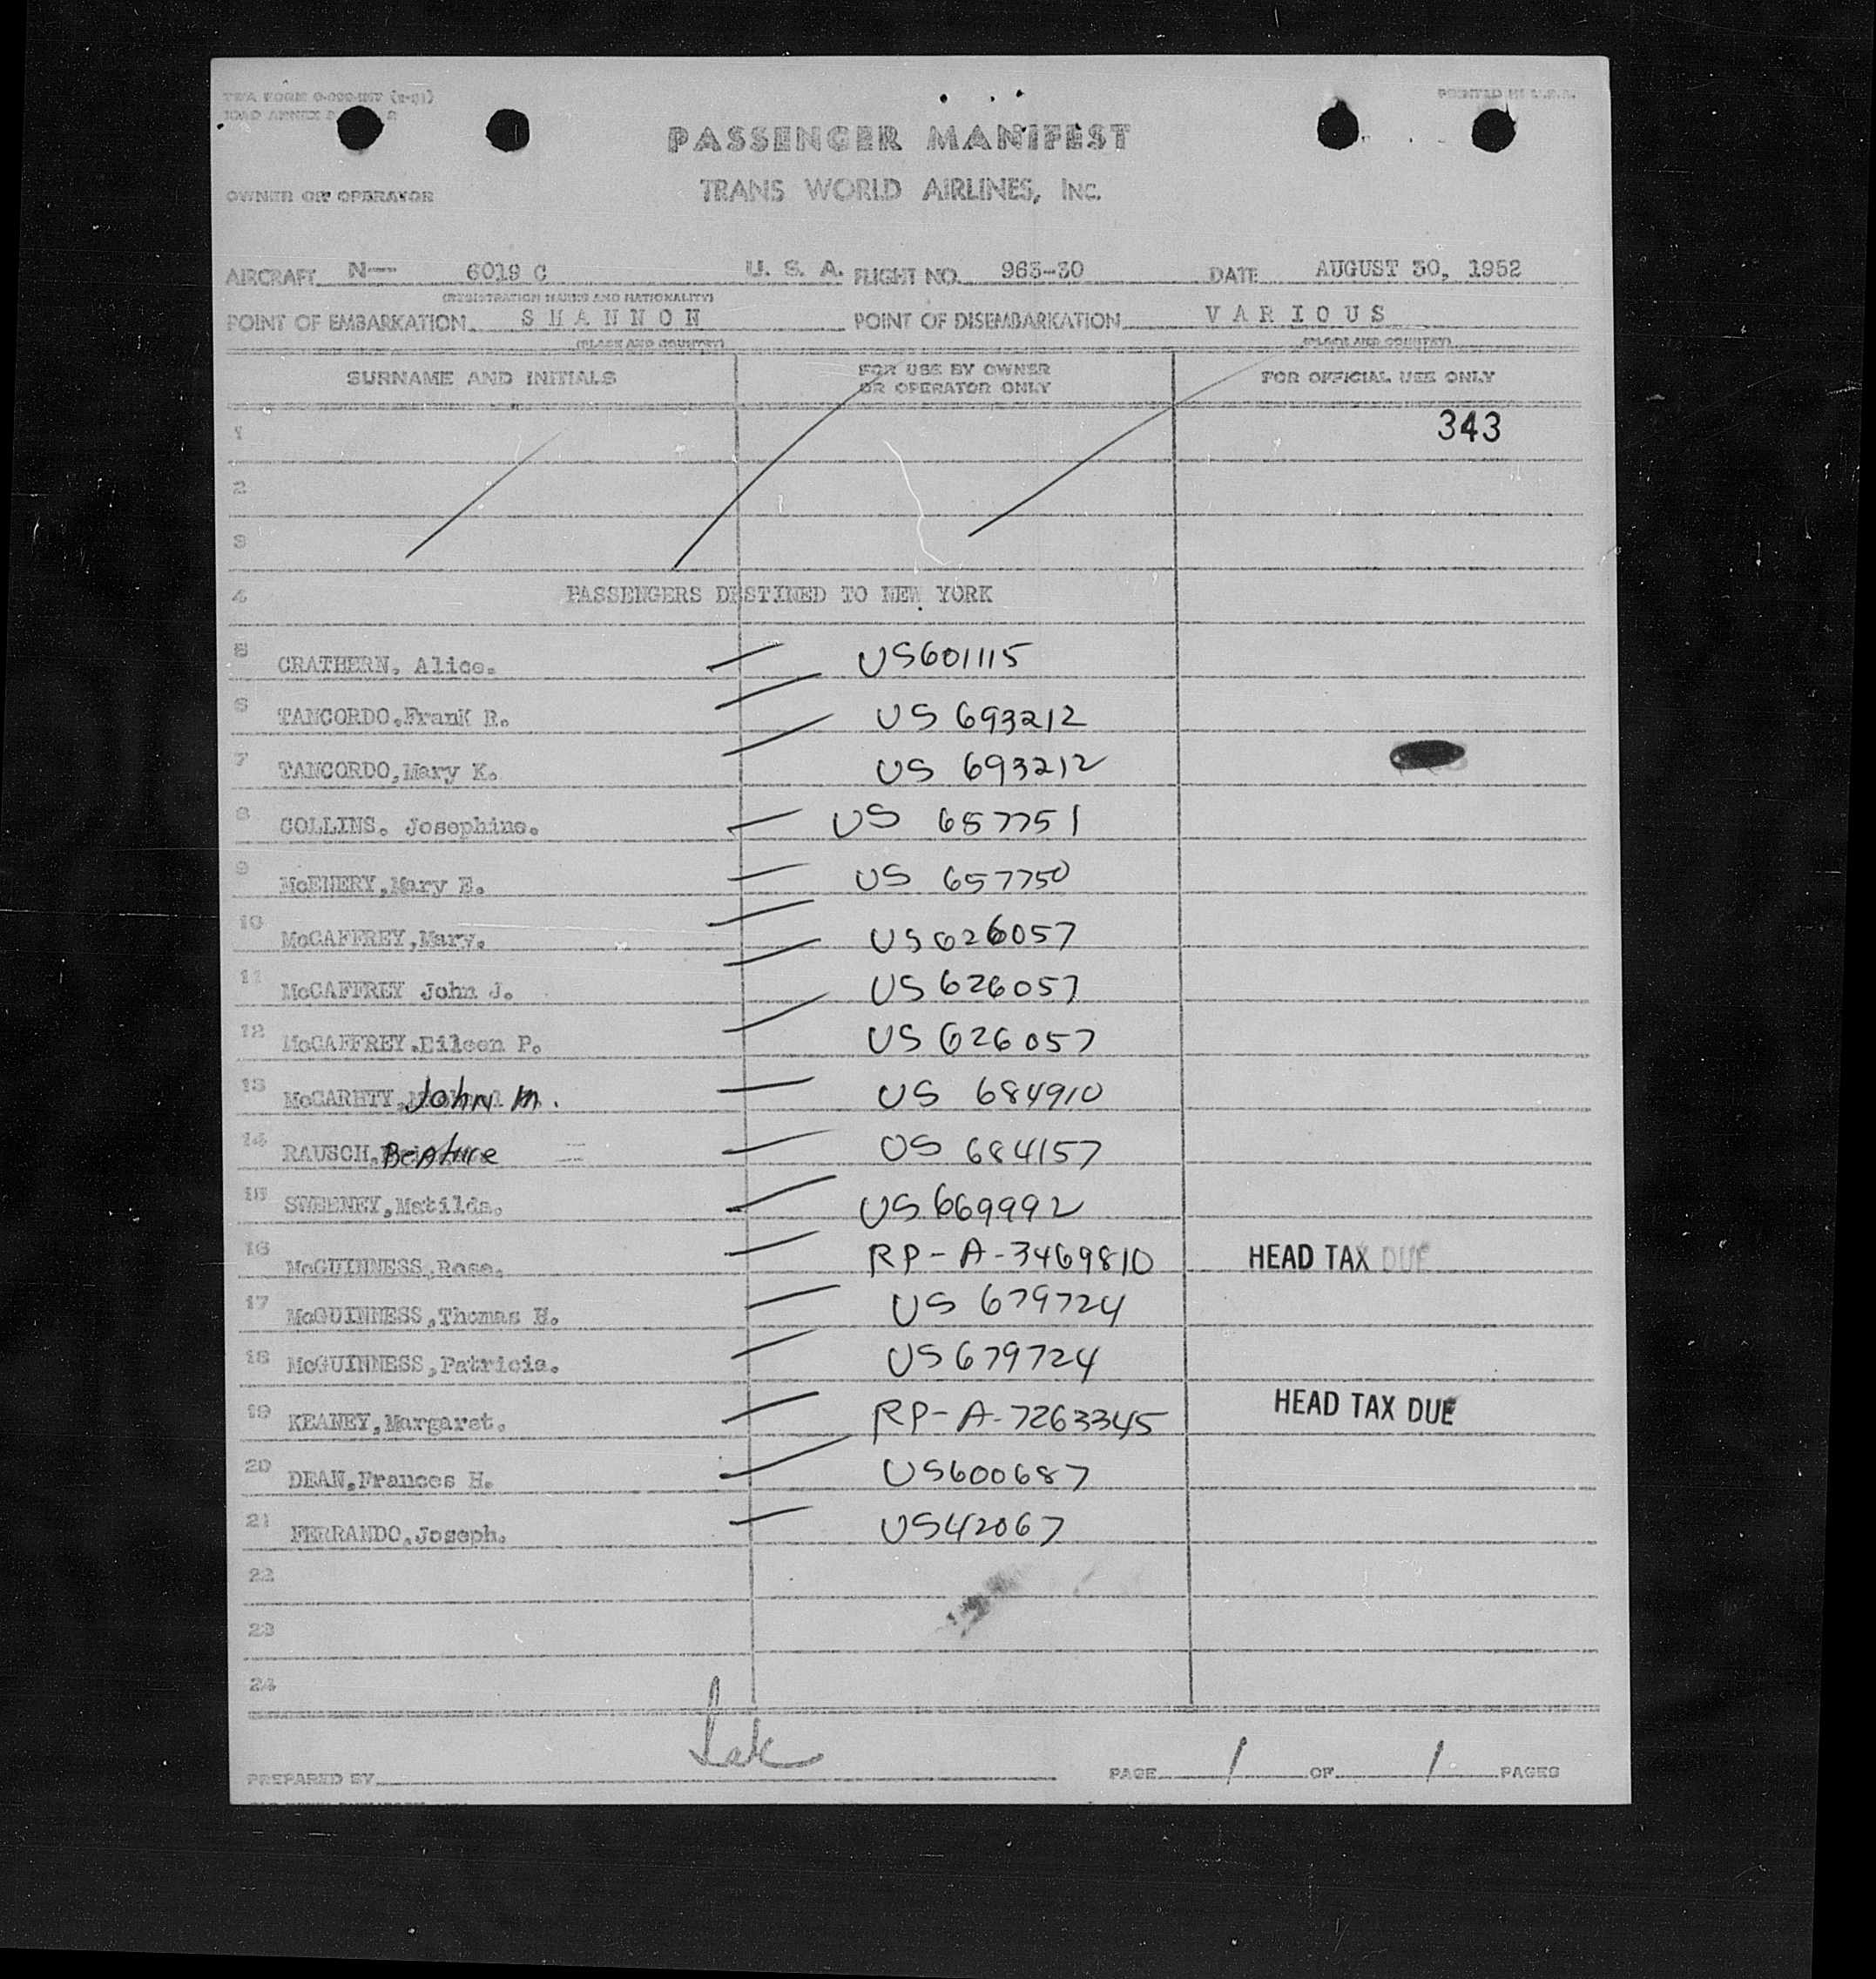 PRINTED IN U.S.A.
PASSENGER MANIFEST
TRANS WORLD AIRLINES, INC.
OWNER OR OPERATOR
AIRCRAFT N— 6019 C U. S. A. FLIGHT NO. 963-30 DATE AUGUST 30, 1952
(REGISTRATION MARKS AND NATIONALITY)
POINT OF EMBARKATION S H A N N O N POINT OF DISEMBARKATION V A R I O U S
(PLACE AND COUNTRY) (PLACE AND COUNTRY)
SURNAME AND INITIALS FOR USE BY OWNER OR OPERATOR ONLY FOR OFFICIAL USE ONLY
1 343
2
3
4 PASSENGERS DESTINED TO NEW YORK
5 CRATHERN, Alice. US601115
6 TANCORDO,Frank R. US 693212
7 TANCORDO,Mary K. US 693212
8 COLLINS. Josephine. US 657751
9 McENERY,Mary E. US 657750
10 McCAFFREY,Mary. US626057
11 McCAFFREY John J. US626057
12 McCAFFREY.Eileen P. US 626057
13 McCARHTY, John M. US 684910
14 RAUSCH, Beatrice US 684157
15 SWEENEY,Matilda. US669992
16 McGUINNESS,Rose. RP-A-3469810 HEAD TAX DUE
17 McGUINNESS,Thomas H. US 679724
18 McGUINNESS,Patricia. US679724
19 KEANEY,Margaret. RP-A-7263345 HEAD TAX DUE
20 DEAN,Frances H. US600687
21 FERRANDO,Joseph. US42067
22
23
24
PREPARED BY PAGE 1 OF 1 PAGES